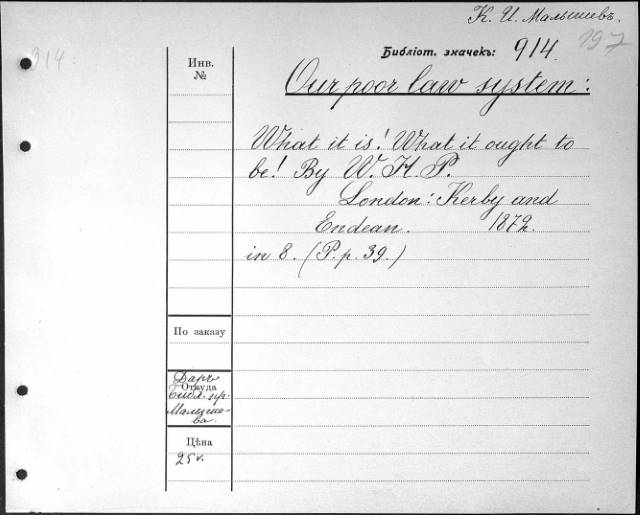 К. И. Малышевъ.
197
914.
Библіот. значекъ: 914.
Инв.
№
Our poor law system:
What it is! What it ought to
be! By W. H. P.
London: Kerby and
Endean. 1872.
in 8. (P. p. 39.)
По заказу
Даръ
Откуда
Библ. пр.
Малыше-
ва.
Цѣна
25 к.